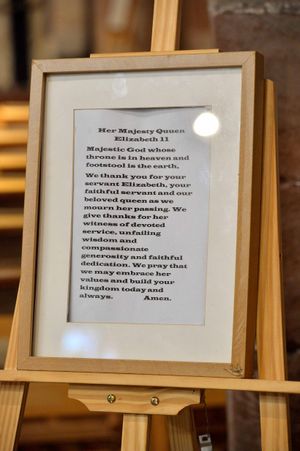 Her Majesty Quuen
Elizabeth 11
Majestic God whose
throne is in heaven and
footstool is the earth,
We thank you for your
servant Elizabeth, your
faithful servant and our
beloved queen as we
mourn her passing. We
give thanks for her
witness of devoted
service, unfailing
wisdom and
compassionate
generosity and faithful
dedication. We pray that
we may embrace her
values and build your
kingdom today and
always. Amen.